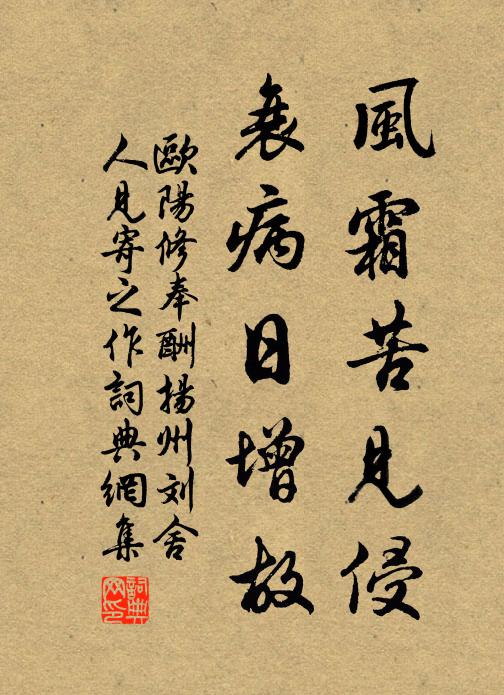 風霜苦見侵
衰病日增故
歐陽修奉酬揚州刘舍
人見寄之作詞典網集